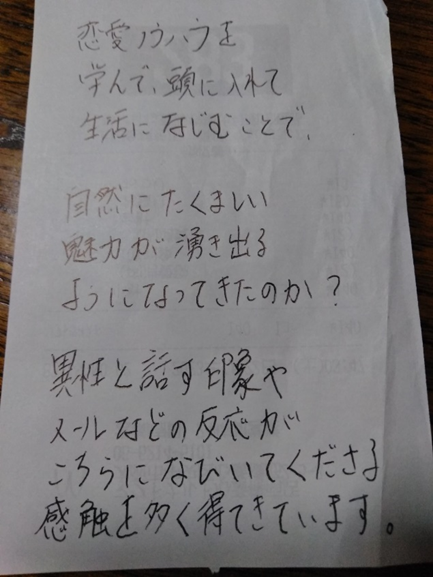 恋愛ノウハウを
学んで、頭に入れて
生活になじむことで、
自然にたくましい
魅力が湧き出る
ようになってきたのか?
異性と話す印象や
メールなどの反応が
こちらになびいてくださる
感触を多く得てきています。